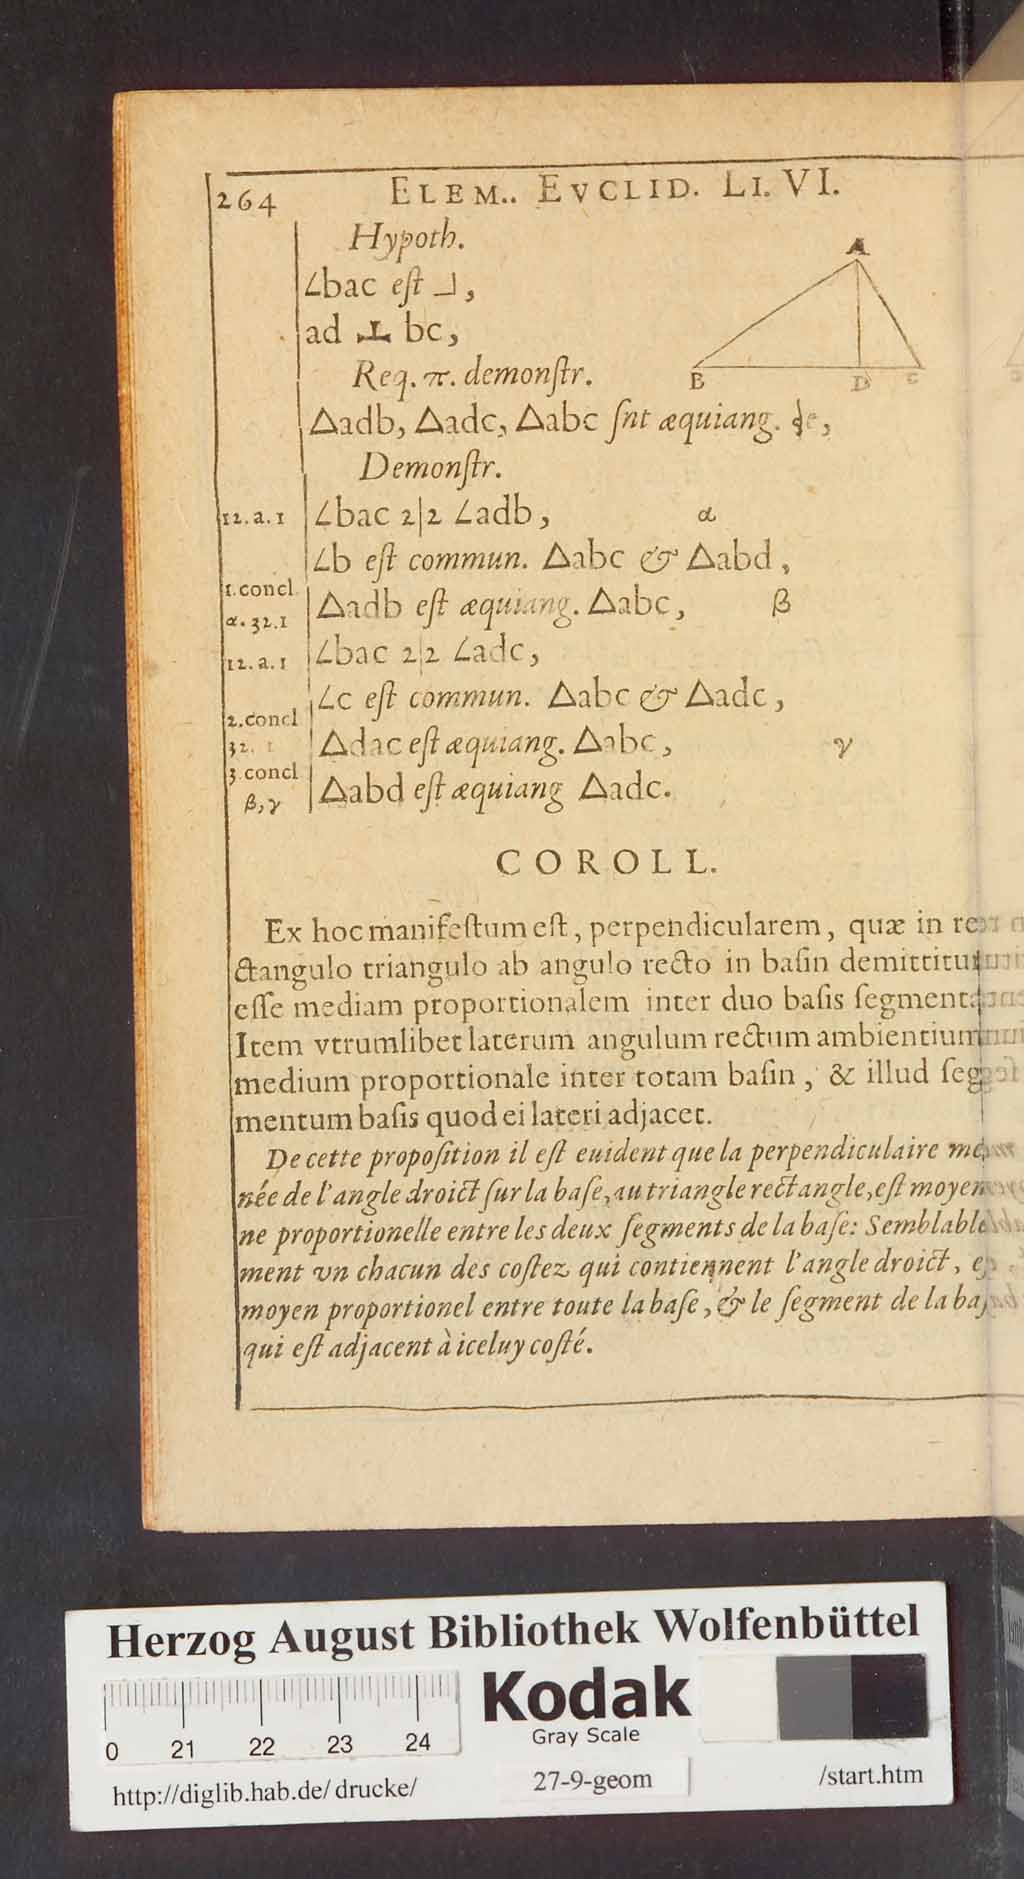 264 ELEM.. EVCLID. LI. VI.
Hypoth.
∠bac eſt ⅃,
ad ⊥ bc,
Req. π. demonſtr.
△adb, △adc, △abc ſnt æquiang.
Demonſtr.
12.a.1 ∠bac 2|2 ∠adb, α
∠b eſt commun. △abc & △abd,
1.concl.
α. 32.1 △adb eſt æquiang. △abc, β
12.a.1 ∠bac 2|2 ∠adc,
∠c eſt commun. △abc & △adc,
2.concl
32. 1 △dac eſt æquiang. △abc, γ
3.concl
β,γ △abd eſt æquiang △adc.
A
B D C
COROLL.
Ex hoc manifeſtum eſt, perpendicularem, quæ in re-
ctangulo triangulo ab angulo recto in baſin demittitur
eſſe mediam proportionalem inter duo baſis ſegmenta
Item vtrumlibet laterum angulum rectum ambientium
medium proportionale inter totam baſin, & illud ſeg-
mentum baſis quod ei lateri adjacet.
De cette propoſition il eſt euident que la perpendiculaire me-
née de l'angle droict ſur la baſe, au triangle rectangle, eſt moyen-
ne proportionelle entre les deux ſegments de la baſe: Semblable-
ment vn chacun des coſtez qui contiennent l'angle droict,
moyen proportionel entre toute la baſe, & le ſegment de la
qui eſt adjacent à iceluy coſté.
Herzog August Bibliothek Wolfenbüttel
Kodak
Gray Scale
0 21 22 23 24
http://diglib.hab.de/drucke/ 27-9-geom /start.htm